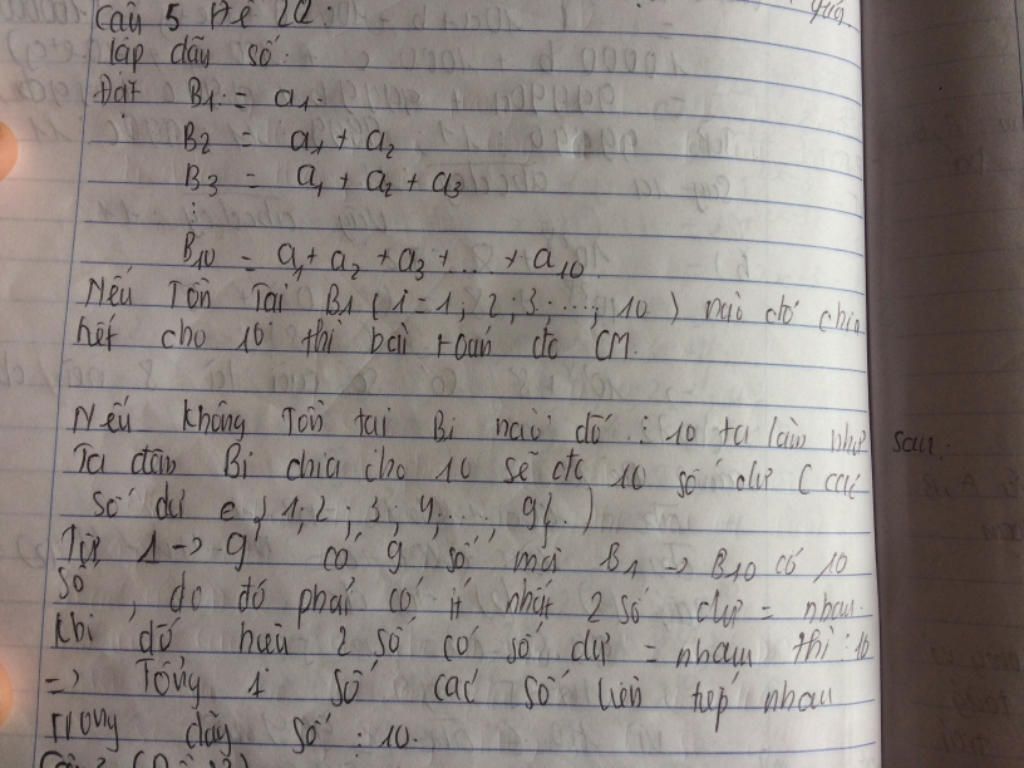 Câu 5 Đề 22:
lập dãy số:
Đặt B1 = a1.
B2 = a1 + a2
B3 = a1 + a2 + a3
⋮
B10 = a1 + a2 + a3 + ... + a10
Nếu Tồn Tại B1 (i = 1; 2; 3; ...; 10) nào đó chia
hết cho 10 thì bài toán đc CM.
Nếu không Tồn tại Bi nào đó ⋮ 10 ta làm như sau:
Ta đem Bi chia cho 10 sẽ đc 10 số dư (các
số dư e { 1; 2; 3; 4; ...; 9}.)
Từ 1 -> 9 có 9 số mà B1 -> B10 có 10
số, do đó phải có ít nhất 2 số dư = nhau.
Khi đó hiệu 2 số có số dư = nhau thì ⋮ 10
=> Tổng 1 số các số liên tiếp nhau
Trong dãy số ⋮ 10.